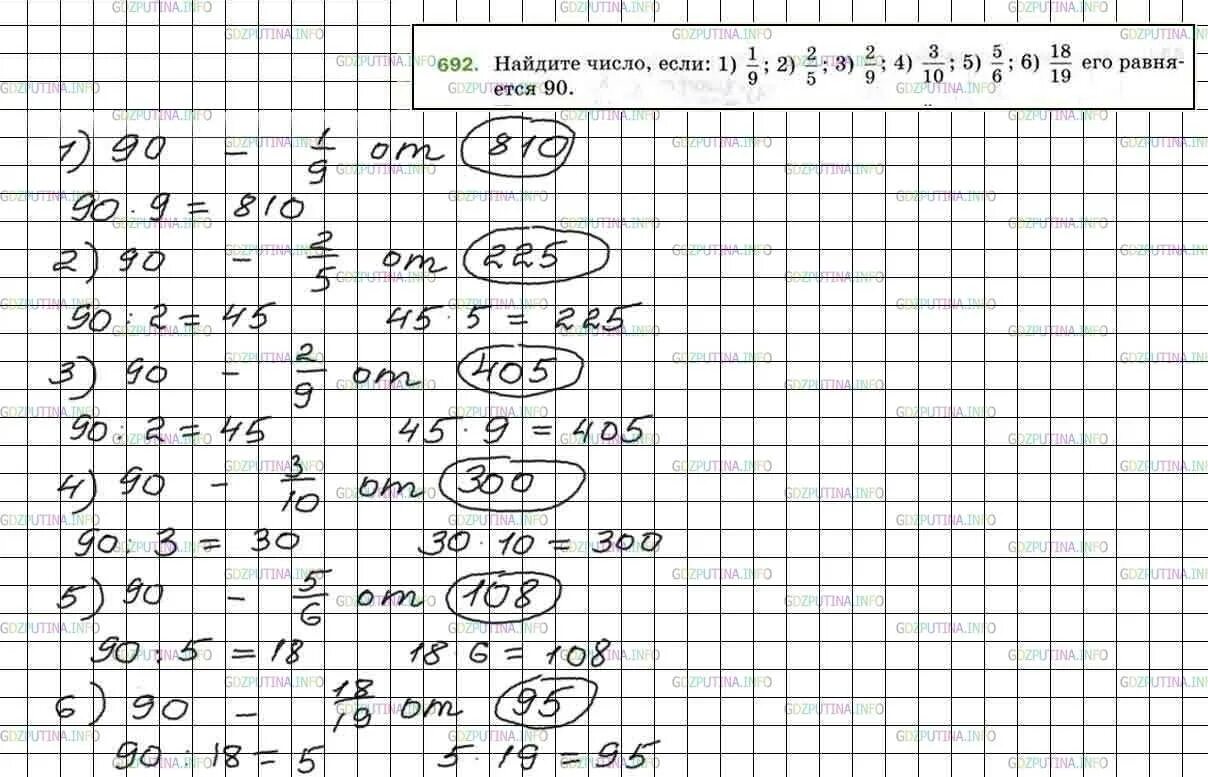 692. Найдите число, если: 1) 1/9; 2) 2/5; 3) 2/9; 4) 3/10; 5) 5/6; 6) 18/19 его равня-
ется 90.
1) 90 - 1/9 от 810
90 · 9 = 810
2) 90 - 2/5 от 225
90 : 2 = 45 45 · 5 = 225
3) 90 - 2/9 от 405
90 : 2 = 45 45 · 9 = 405
4) 90 - 3/10 от 300
90 : 3 = 30 30 · 10 = 300
5) 90 - 5/6 от 108
90 : 5 = 18 18 · 6 = 108
6) 90 - 18/19 от 95
90 : 18 = 5 5 · 19 = 95
GDZPUTINA.INFO